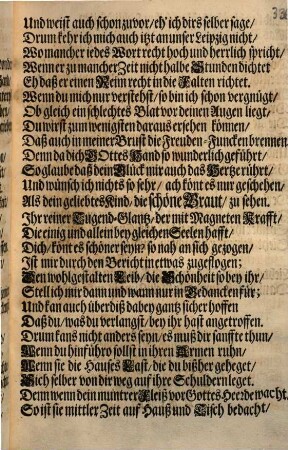 Und weist auch schon zuvor/ eh' ich dirs selber sage/
Drum kehr ich mich auch itzt an unser Leipzig nicht/
Wo mancher iedes Wort recht hoch und herrlich spricht/
Wenn er zu mancher Zeit nicht halbe Stunden dichtet
Eh daß er einen Reim recht in die Falten richtet.
Wenn du mich nur verstehst/ so bin ich schon vergnügt/
Ob gleich ein schlechtes Blat vor deinen Augen liegt/
Du wirst zum wenigsten daraus ersehen können/
Daß auch in meiner Brust die Freuden-Funcken brennen.
Denn da dich Gottes Hand so wunderlich geführt/
So glaube daß dein Glück mir auch das Hertze rührt/
Und wünsch ich nichts so sehr/ ach könt es nur geschehen/
Als dein geliebtes Kind, die schöne Braut/ zu sehen.
Ihr reiner Tugend-Glantz/ der mit Magneten Krafft/
Die einig und allein bey gleichen Seelen hafft/
Dich/ könt es schöner seyn/ so nah an sich gezogen/
Ist mir durch den Bericht in etwas zugeflogen;
Den wohlgestalten Leib/ die Schönheit so bey ihr/
Stell ich mir dann und wann nur in Gedancken für;
Und kan auch überdiß dabey gantz sicher hoffen
Daß du/ was du verlangst/ bey ihr hast angetroffen.
Drum kans nicht anders seyn/ es muß dir sanffte thun/
Wenn du hinführo sollst in ihren Armen ruhn/
Wenn sie die Hauses Last/ die du bißher geheget/
Sich selber von dir weg auf ihre Schultern leget.
Denn wenn dein muntrer Fleiß vor Gottes Heerde wacht.
So ist sie mittler Zeit auf Hauß und Tisch bedacht/